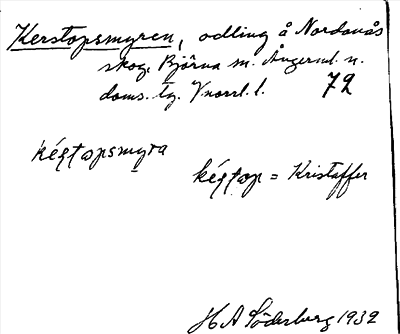 Kerstopsmyren, odling å Nordanås
skog, Björna sn. Ångerml. n.
doms. tg. V.norrl. l. 72
kéștopsmyra
kéștop = Kristaffer
H A Söderberg 1932